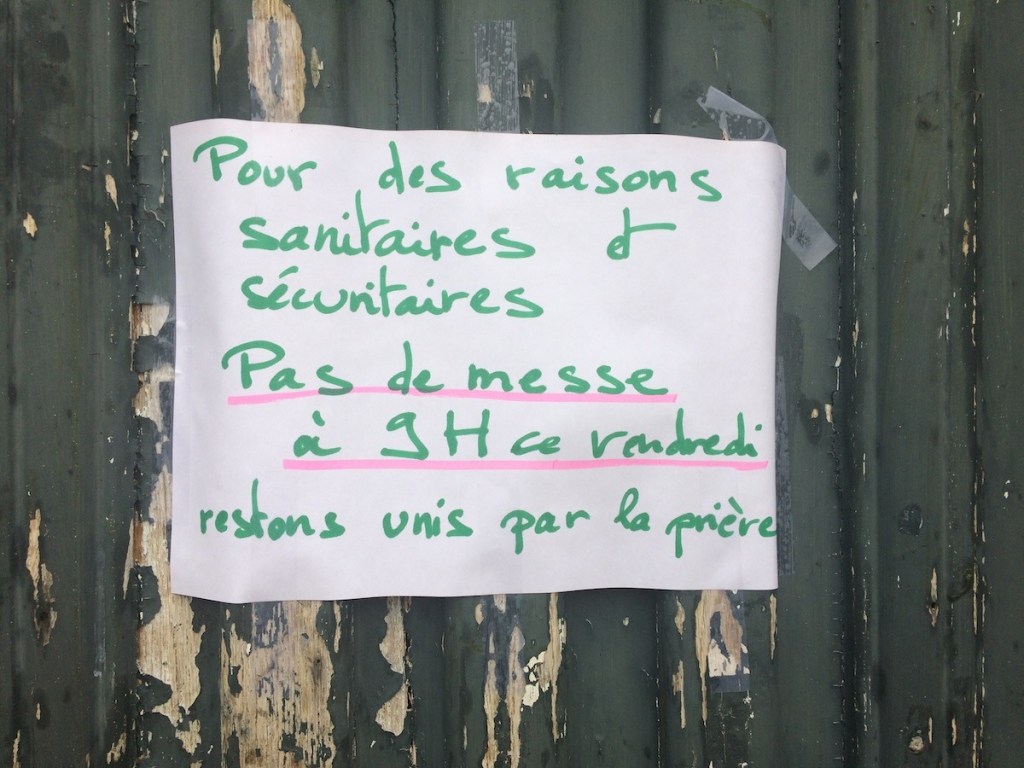 Pour des raisons
sanitaires et
sécuritaires
Pas de messe
à 9H ce vendredi
restons unis par la prière